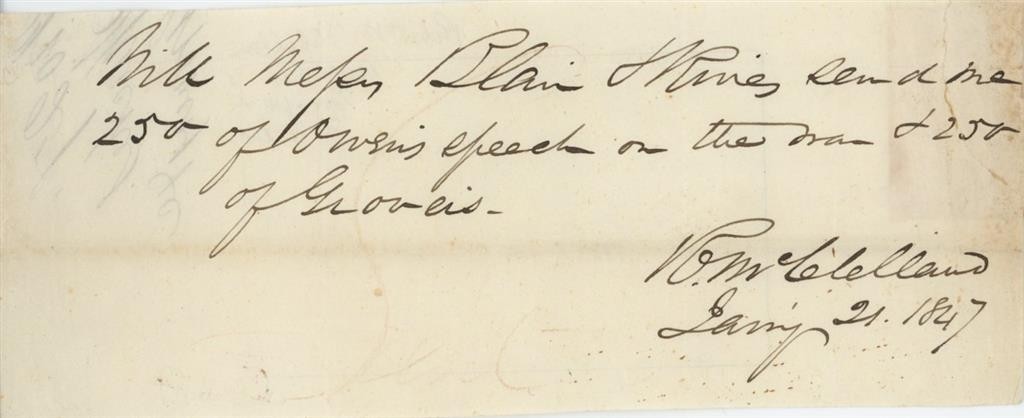 Will Messrs Blair & Rives send me
250 of Owen's speech on the war & 250
of Grover's.
R. McClelland
Jany 21. 1847